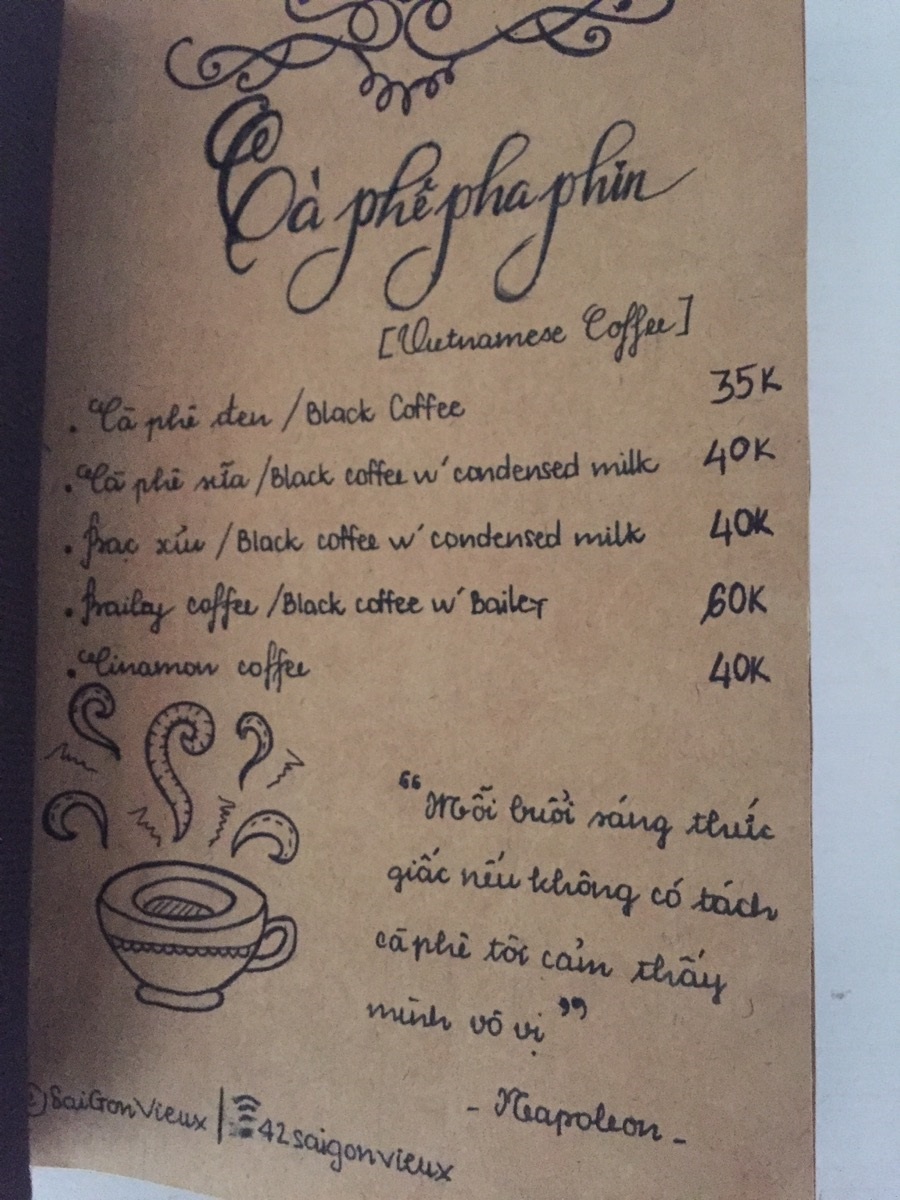 Cà phê pha phin
[Vietnamese Coffee]
. Cà phê đen / Black Coffee 35K
. Cà phê sữa / Black coffee w' condensed milk 40K
. Bạc xỉu / Black coffee w' condensed milk 40K
. Bailey coffee / Black coffee w' Bailey 60K
. Cinamon coffee 40K
“Mỗi buổi sáng thức
giấc nếu không có tách
cà phê tôi cảm thấy
mình vô vị”
- Napoleon -
@SaiGonVieux | 42saigonvieux